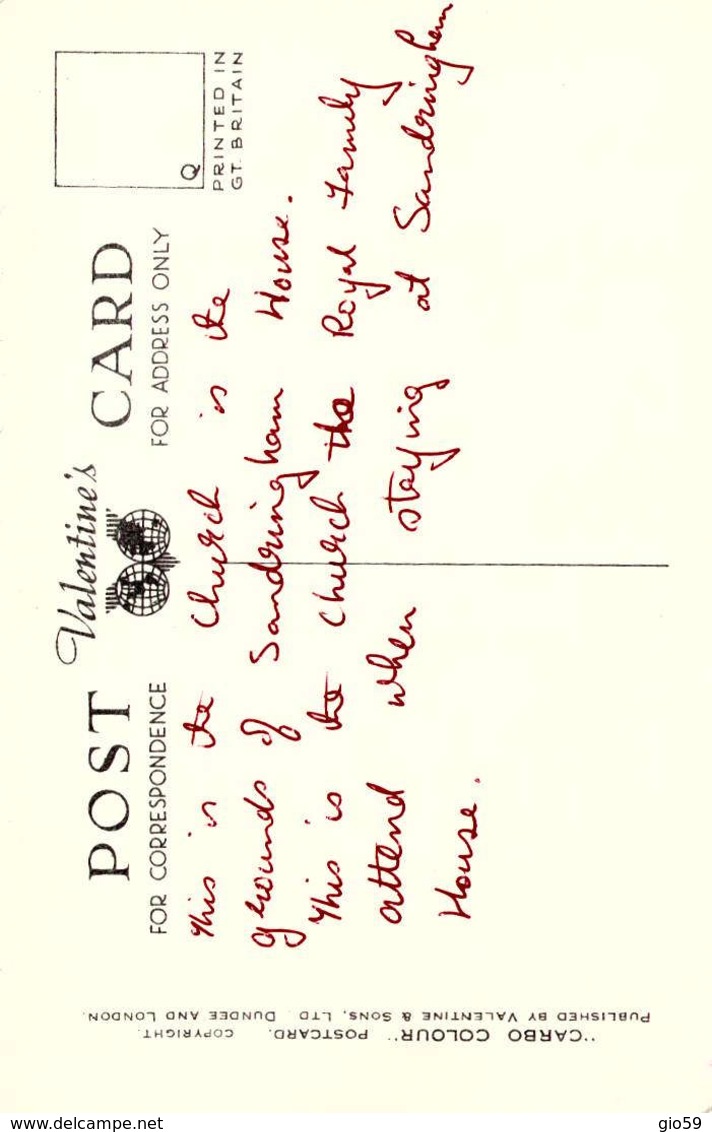 POST Valentine's CARD
FOR CORRESPONDENCE
FOR ADDRESS ONLY
Q
PRINTED IN
GT. BRITAIN
This is the Church is the
grounds of Sandringham House.
This is the church the Royal Family
attend when staying at Sandringham
House.
"CARBO COLOUR" POSTCARD. COPYRIGHT.
PUBLISHED BY VALENTINE & SONS, LTD. DUNDEE AND LONDON.
www.delcampe.net
gio59